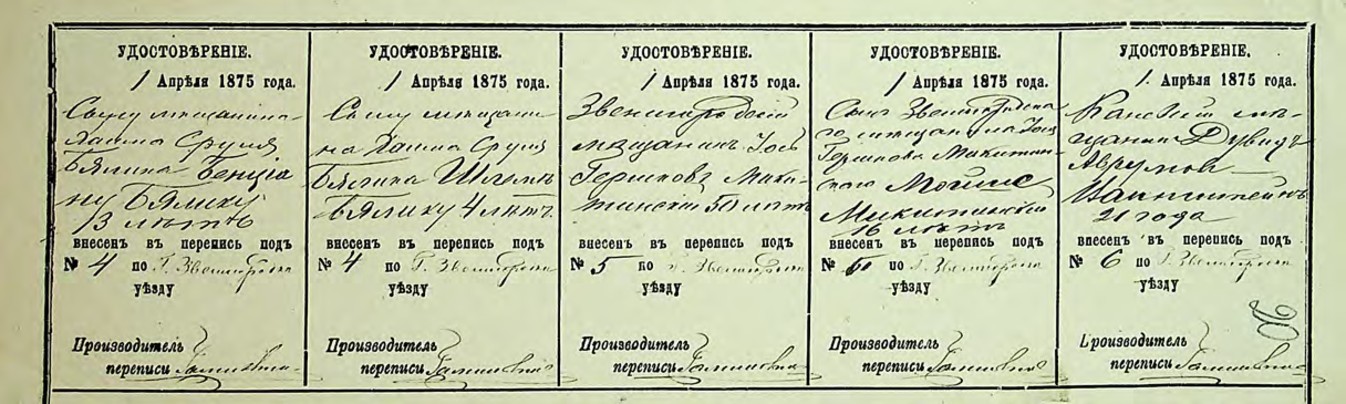 УДОСТОВѢРЕНІЕ.
1 Апрѣля 1875 года.
Сыну мещанина
Хаима Сруля
Бялика Бенціа
ну Бялику
13 лѣтъ
внесенъ въ перепись подъ
№ 4 по г. Звенигородка
уѣзду
Производитель
переписи
УДОСТОВѢРЕНІЕ.
1 Апрѣля 1875 года.
Сыну мещани
на Хаима Сруля
Бялика Шлемѣ
Бялику 4 лѣтъ
внесенъ въ перепись подъ
№ 4 по г. Звенигородка
уѣзду
Производитель
переписи
УДОСТОВѢРЕНІЕ.
1 Апрѣля 1875 года.
Звенигородскій
мещанинъ Іось
Гершковъ Мики-
тинскій 50 лѣтъ
внесенъ въ перепись подъ
№ 5 по г. Звенигородка
уѣзду
Производитель
переписи
УДОСТОВѢРЕНІЕ.
1 Апрѣля 1875 года.
Сынъ Звенигородска
го мещанина Іося
Гершкова Микитин-
Мойше
Микитинскій
16 лѣтъ
внесенъ въ перепись подъ
№ 5 по г. Звенигородка
уѣзду
Производитель
переписи
УДОСТОВѢРЕНІЕ.
1 Апрѣля 1875 года.
Каневскій мѣ-
щанинъ Дувидъ
Аврумов
Ваинштейнъ
21 года
внесенъ въ перепись подъ
№ 6 по г. Звенигородка
уѣзду
Производитель
переписи